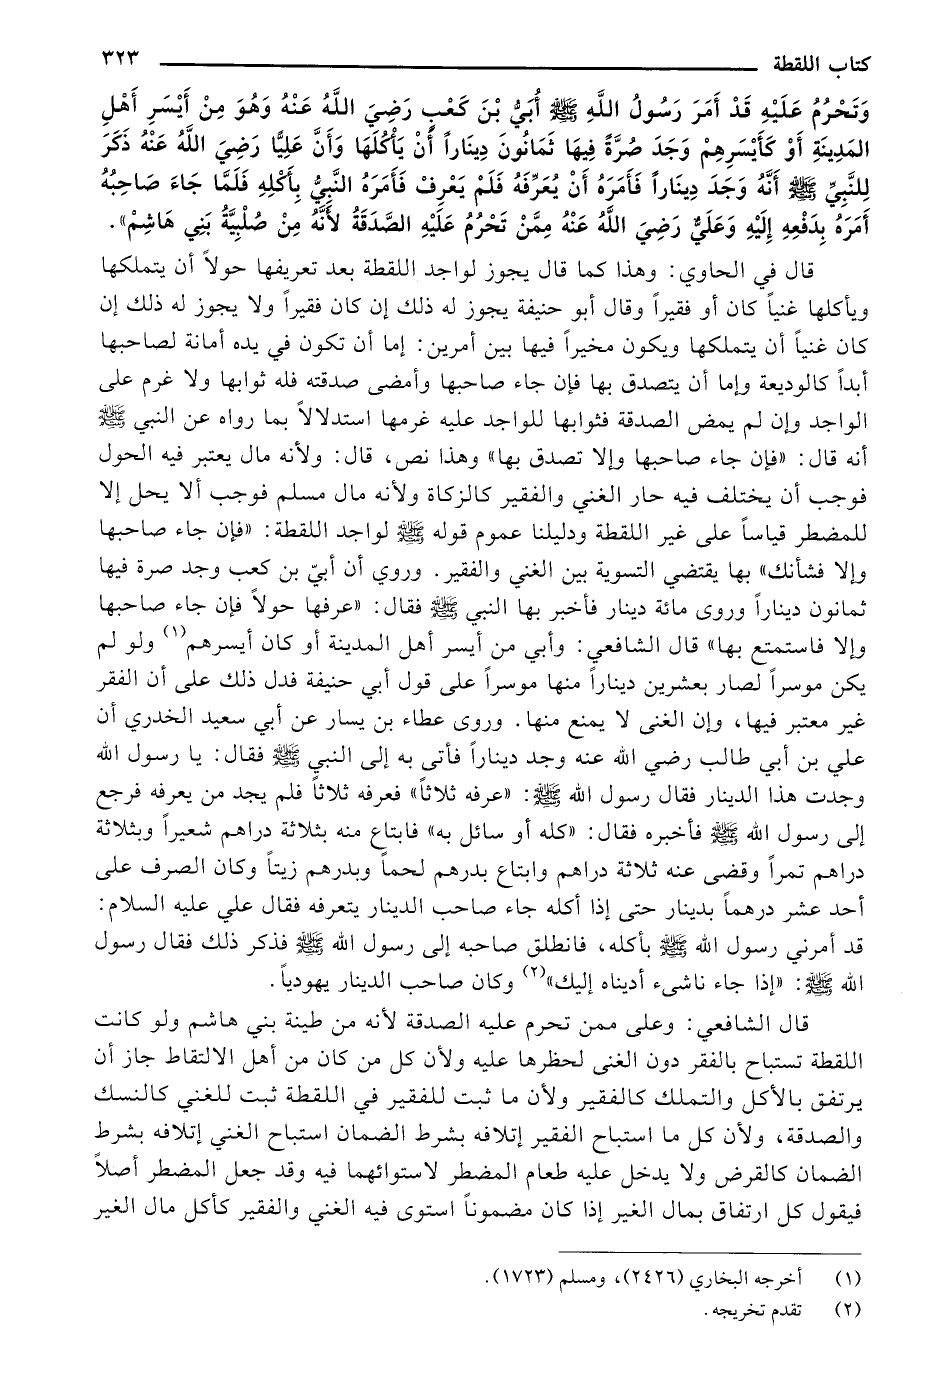 كتاب اللقطة ٣٢٣
وَتَحْرُمُ عَلَيْهِ قَدْ أَمَرَ رَسُولُ اللَّهِ ﷺ أُبَيُّ بْنَ كَعْبٍ رَضِيَ اللَّهُ عَنْهُ وَهُوَ مِنْ أَيْسَرِ أَهْلِ
المَدِينَةِ أَوْ كَأَيْسَرِهِمْ وَجَدَ صُرَّةً فِيهَا ثَمَانُونَ دِينَاراً أَنْ يَأْكُلَهَا وَأَنَّ عَلِيًّا رَضِيَ اللَّهُ عَنْهُ ذَكَرَ
لِلنَّبِيِّ ﷺ أَنَّهُ وَجَدَ دِينَاراً فَأَمَرَهُ أَنْ يُعَرِّفَهُ فَلَمْ يَعْرِفْ فَأَمَرَهُ النَّبِيُّ بِأَكْلِهِ فَلَمَّا جَاءَ صَاحِبُهُ
أَمَرَهُ بِدَفْعِهِ إِلَيْهِ وَعَلَيٌّ رَضِيَ اللَّهُ عَنْهُ مِمَّنْ تَحْرُمُ عَلَيْهِ الصَّدَقَةُ لأَنَّهُ مِنْ صُلْبِيَّةُ بَنِي هَاشِمْ».
قال في الحاوي: وهذا كما قال يجوز لواجد اللقطة بعد تعريفها حولاً أن يتملكها
ويأكلها غنياً كان أو فقيراً وقال أبو حنيفة يجوز له ذلك إن كان فقيراً ولا يجوز له ذلك إن
كان غنياً أن يتملكها ويكون مخيراً فيها بين أمرين: إما أن تكون في يده أمانة لصاحبها
أبداً كالوديعة وإما أن يتصدق بها فإن جاء صاحبها وأمضى صدقته فله ثوابها ولا غرم على
الواجد وإن لم يمض الصدقة فثوابها للواجد عليه غرمها استدلالاً بما رواه عن النبي ﷺ
أنه قال: «فإن جاء صاحبها وإلا تصدق بها» وهذا نص، قال: ولأنه مال يعتبر فيه الحول
فوجب أن يختلف فيه حار الغني والفقير كالزكاة ولأنه مال مسلم فوجب ألا يحل إلا
للمضطر قياساً على غير اللقطة ودليلنا عموم قوله ﷺ لواجد اللقطة: «فإن جاء صاحبها
وإلا فشأنك» بها يقتضي التسوية بين الغني والفقير. وروي أن أبيّ بن كعب وجد صرة فيها
ثمانون ديناراً وروى مائة دينار فأخبر بها النبي ﷺ فقال: «عرفها حولاً فإن جاء صاحبها
وإلا فاستمتع بها» قال الشافعي: وأبي من أيسر أهل المدينة أو كان أيسرهم(١) ولو لم
يكن موسراً لصار بعشرين ديناراً منها موسراً على قول أبي حنيفة فدل ذلك على أن الفقر
غير معتبر فيها، وإن الغنى لا يمنع منها. وروى عطاء بن يسار عن أبي سعيد الخدري أن
علي بن أبي طالب رضي الله عنه وجد ديناراً فأتى به إلى النبي ﷺ فقال: يا رسول الله
وجدت هذا الدينار فقال رسول الله ﷺ: «عرفه ثلاثاً» فعرفه ثلاثاً فلم يجد من يعرفه فرجع
إلى رسول الله ﷺ فأخبره فقال: «كله أو سائل به» فابتاع منه بثلاثة دراهم شعيراً وبثلاثة
دراهم تمراً وقضى عنه ثلاثة دراهم وابتاع بدرهم لحماً وبدرهم زيتاً وكان الصرف على
أحد عشر درهماً بدينار حتى إذا أكله جاء صاحب الدينار يتعرفه فقال علي عليه السلام:
قد أمرني رسول الله ﷺ بأكله، فانطلق صاحبه إلى رسول الله ﷺ فذكر ذلك فقال رسول
الله ﷺ: «إذا جاء ناشىء أديناه إليك»(٢) وكان صاحب الدينار يهودياً.
قال الشافعي: وعلى ممن تحرم عليه الصدقة لأنه من طينة بني هاشم ولو كانت
اللقطة تستباح بالفقر دون الغنى لحظرها عليه ولأن كل من كان من أهل الالتقاط جاز أن
يرتفق بالأكل والتملك كالفقير ولأن ما ثبت للفقير في اللقطة ثبت للغني كالنسك
والصدقة، ولأن كل ما استباح الفقير إتلافه بشرط الضمان استباح الغني إتلافه بشرط
الضمان كالقرض ولا يدخل عليه طعام المضطر لاستوائهما فيه وقد جعل المضطر أصلاً
فيقول كل ارتفاق بمال الغير إذا كان مضموناً استوى فيه الغني والفقير كأكل مال الغير
(١) أخرجه البخاري (٢٤٢٦)، ومسلم (١٧٢٣).
(٢) تقدم تخريجه.